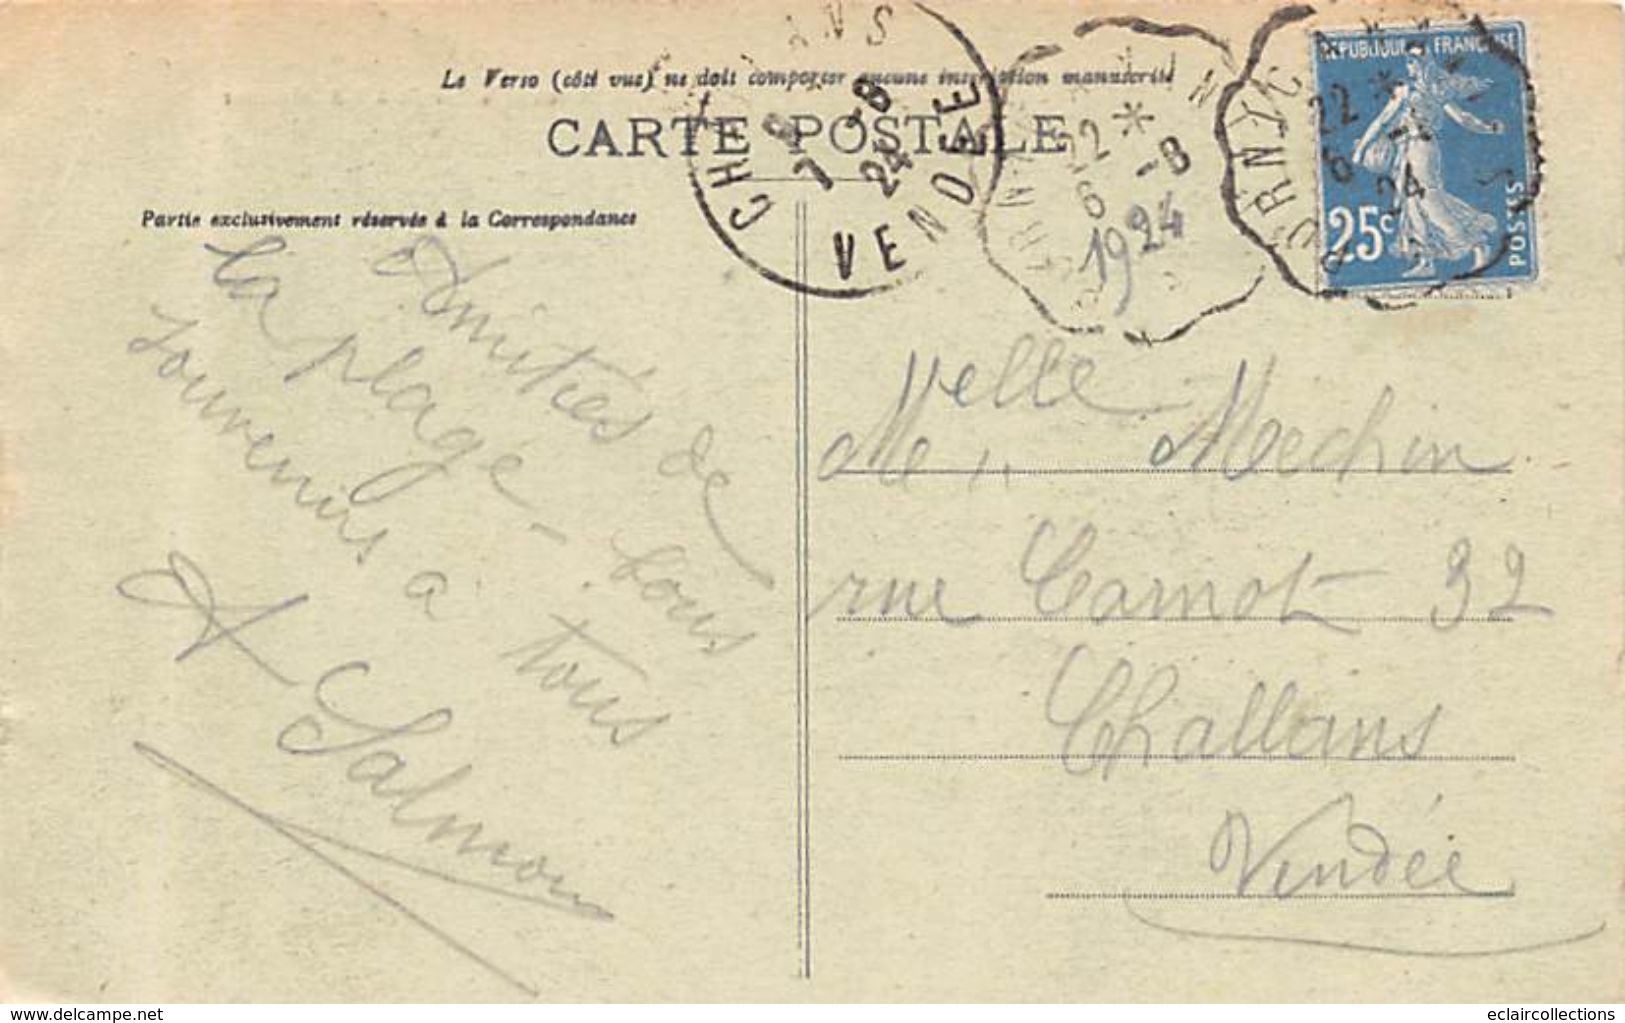 Le Verso (côté vue) ne doit comporter aucune inscription manuscrite
CARTE POSTALE
Partie exclusivement réservée à la Correspondance
CH ANS
6
7 -8
24
VENDEE
22 *
6 -8
1924
PORNIC
22 *
6
24
REPUBLIQUE FRANÇAISE
25c
POSTES
Amitiés de
la plage - bons
souvenirs à tous
A Salmon
Melle
Me " Mechin
rue Carnot 32
Challans
Vendée
www.delcampe.net
eclaircollections